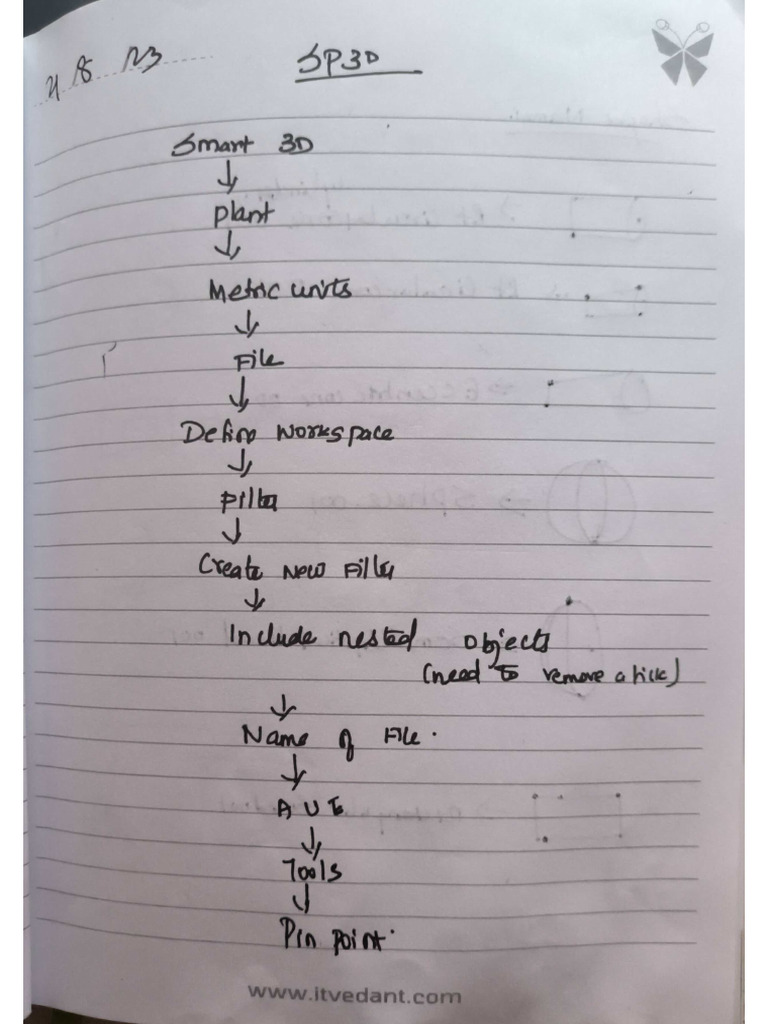 4 8 23
SP3D
Smart 3D
↓
plant
↓
Metric units
↓
File
↓
Define Workspace
↓
Filter
↓
Create New Filter
↓
Include nested objects
(need to remove a tick)
↓
Name of File.
↓
A U E
↓
Tools
↓
Pin point.
www.itvedant.com